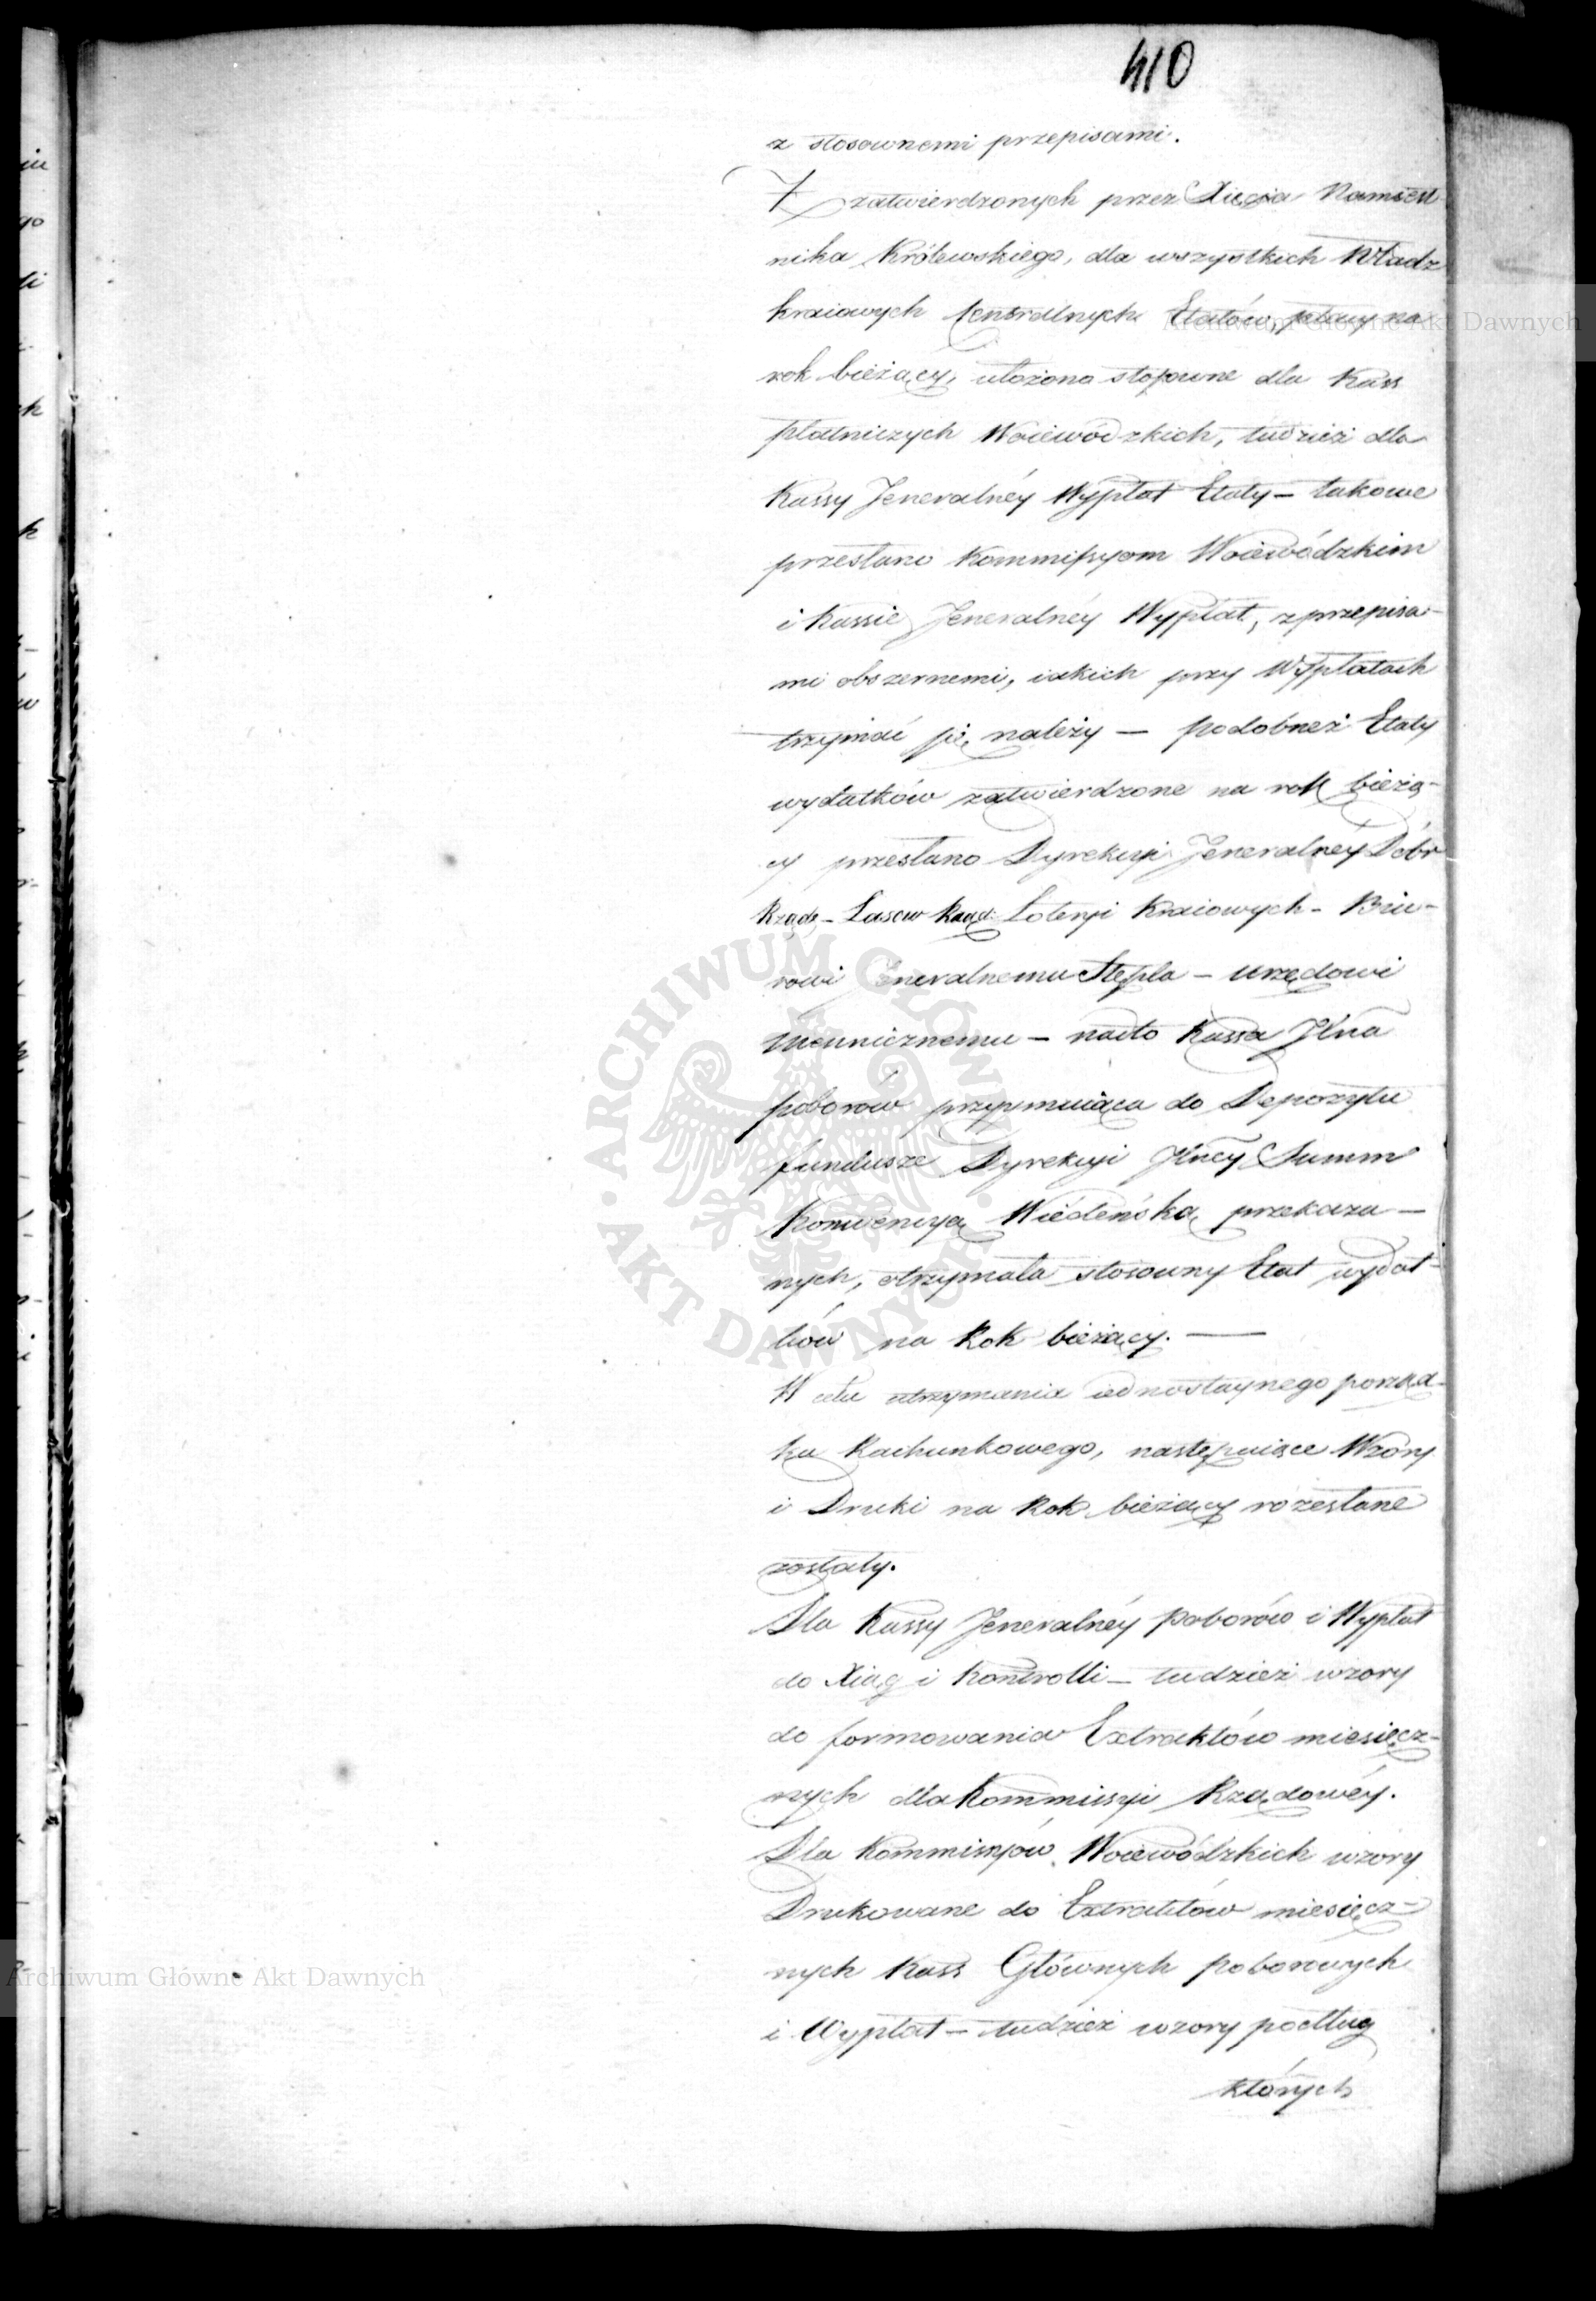 410
z stosownemi przepisami.
Z zatwierdzonych przez Xięcia Namiest-
nika Królewskiego, dla wszystkich Władz
kraiowych Centralnych Etatów, płacy na
rok bieżący, ułożono stosowne dla Kass
płatniczych Woiewódzkich, tudzież dla
Kassy Jeneralnéy Wypłat Etaty – takowe
przesłano Kommissyom Woiewódzkim
i Kassie Jeneralnéy Wypłat, z przepisa-
mi obszernemi, iakich przy Wypłatach
trzymać się należy – podobneż Etaty
wydatków zatwierdzone na rok bieżą-
cy przesłano Dyrekcyi Jeneralnéy Dóbr
Rząd: – Lasów Rząd: Loteryi Kraiowych – Biu-
rowi Jeneralnemu Stępla – Urzędowi
Mennicznemu – nadto Kassa Jlna
poborów przyymuiąca do Depozytu
fundusze Dyrekcyi Jlnéy Summ
Konwencyą Wiedeńską przekaza–
nych, otrzymała stosowny Etat wydat-
ków na Rok bieżący. —
W celu utrzymania iednostaynego porząd-
ku Rachunkowego, następuiące Wzory
i Druki na Rok bieżący rozesłane
zostały.
Dla Kassy Jeneralnéy poborów i Wypłat
do Xiąg i Kontrolli – tudzież wzory
do formowania Extraktów miesięcz-
nych dla Kommissyi Rządowéy.
Dla Kommissyów Woiewódzkich wzory
Drukowane do Extraktów miesięcz-
nych Kass Głównych poborowych
i Wypłat – tudzież wzory podług
których
Archiwum Główne Akt Dawnych
Archiwum Główne Akt Dawnych
ARCHIWUM GŁÓWNE AKT DAWNYCH